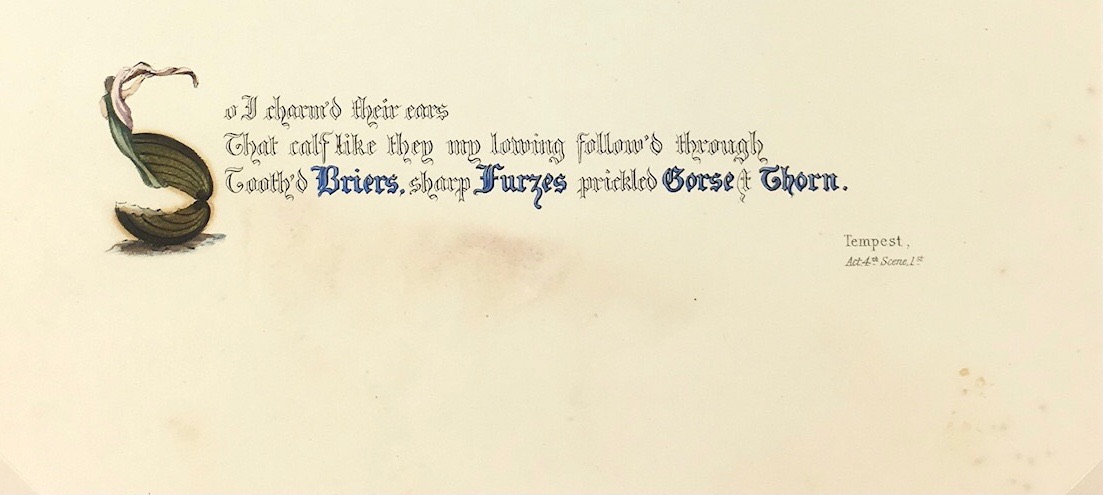 So I charm'd their ears
That calf like they my lowing follow'd through
Tooth'd Briers, sharp Furzes prickled Gorse & Thorn.
Tempest,
Act 4th Scene, 1st